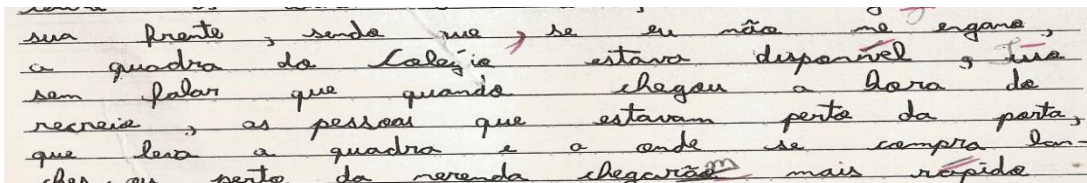 sua frente, sendo que, se eu não me engano,
a quadra do Colégio estava disponível, tive
sem falar que quando chegou a hora do
recreio, as pessoas que estavam perto da porta,
que leva a quadra e a onde se compra lan-
ches ou perto da merenda chegarão m mais rápido